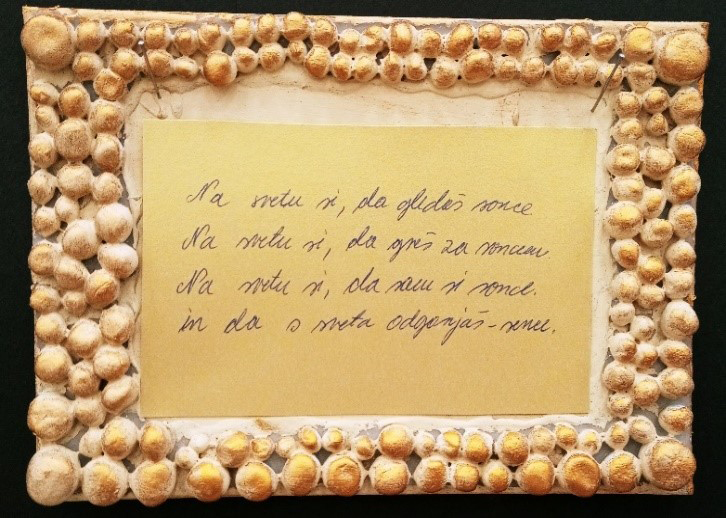 Na svetu si, da gledaš sonce
Na svetu si, da greš za soncem.
Na svetu si, da sam si sonce.
in da s sveta odganjaš - sence.